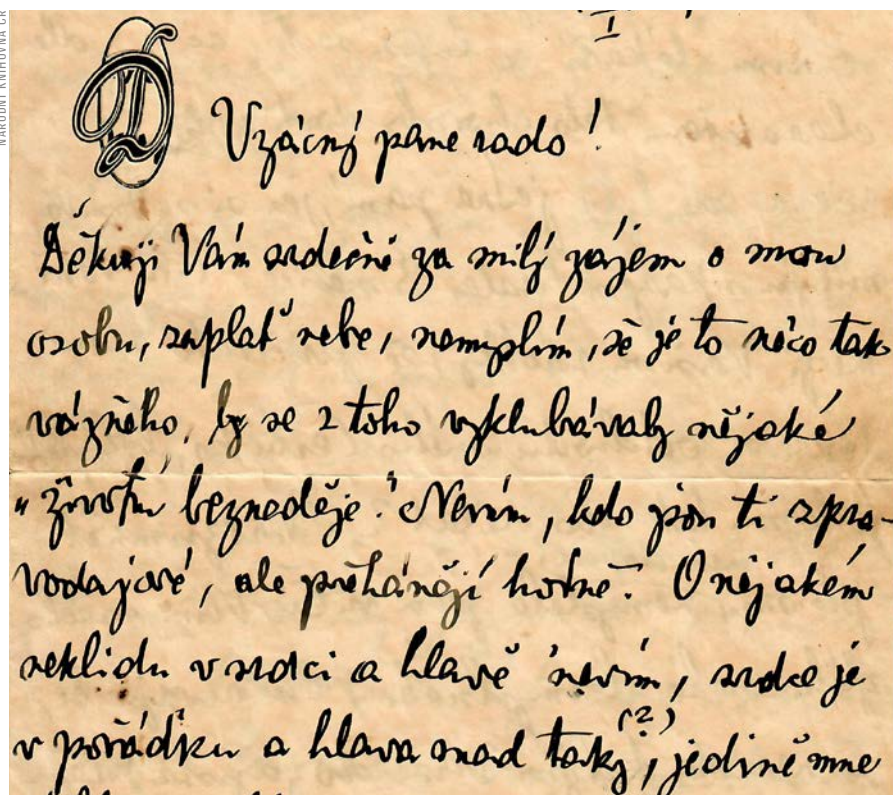 NÁRODNÍ KNIHOVNA ČR
I
D
Vzácný pane rado!
Děkuji Vám srdečně za milý zájem o mou
osobu, zaplať nebe, nemyslím, že je to něco tak
vážného, by se z toho vyklubávaly nějaké
„životní beznaděje." Nevím, kdo jsou ti zpra-
vodajové, ale přehánějí hodně. O nějakém
neklidu v srdci a hlavě nevím, srdce je
v pořádku a hlava snad taky (?), jedině mne